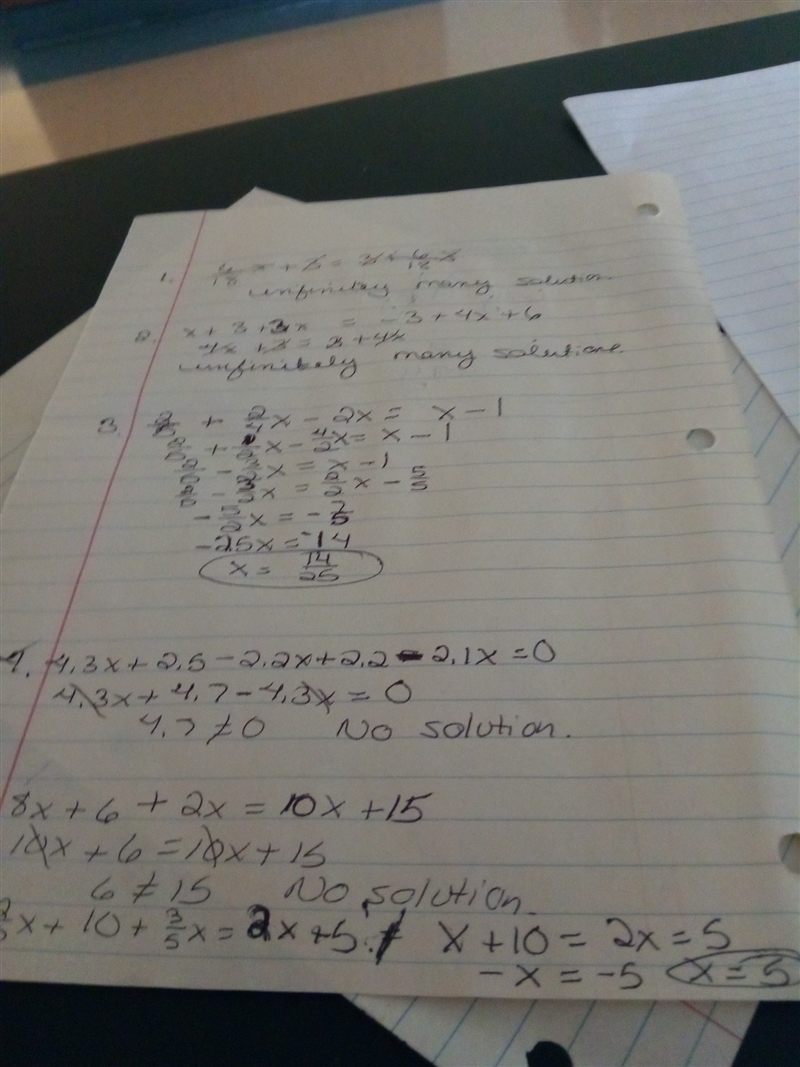 1. 6/18 x + 3 = 3 + 6/18 x
unfinitely many solution.
2. x + 3 + 3x = -3 + 4x + 6
4x + 3 = 3 + 4x
unfinitely many solutions.
3. + 2/ x - 2x = x - 1
+ x - 4/2 x = x - 1
x = x - 1
x = 2/2 x - 5/5
x = - 7/5
-25x = -14
x = 14/25
4. 4.3x + 2.5 - 2.2x + 2.2 - 2.1x = 0
4.3x + 4.7 - 4.3x = 0
4.7 ≠ 0 No solution.
8x + 6 + 2x = 10x + 15
10x + 6 = 10x + 15
6 ≠ 15 No solution.
2/5 x + 10 + 3/5 x = 2x + 5. x + 10 = 2x = 5
-x = -5 x = 5